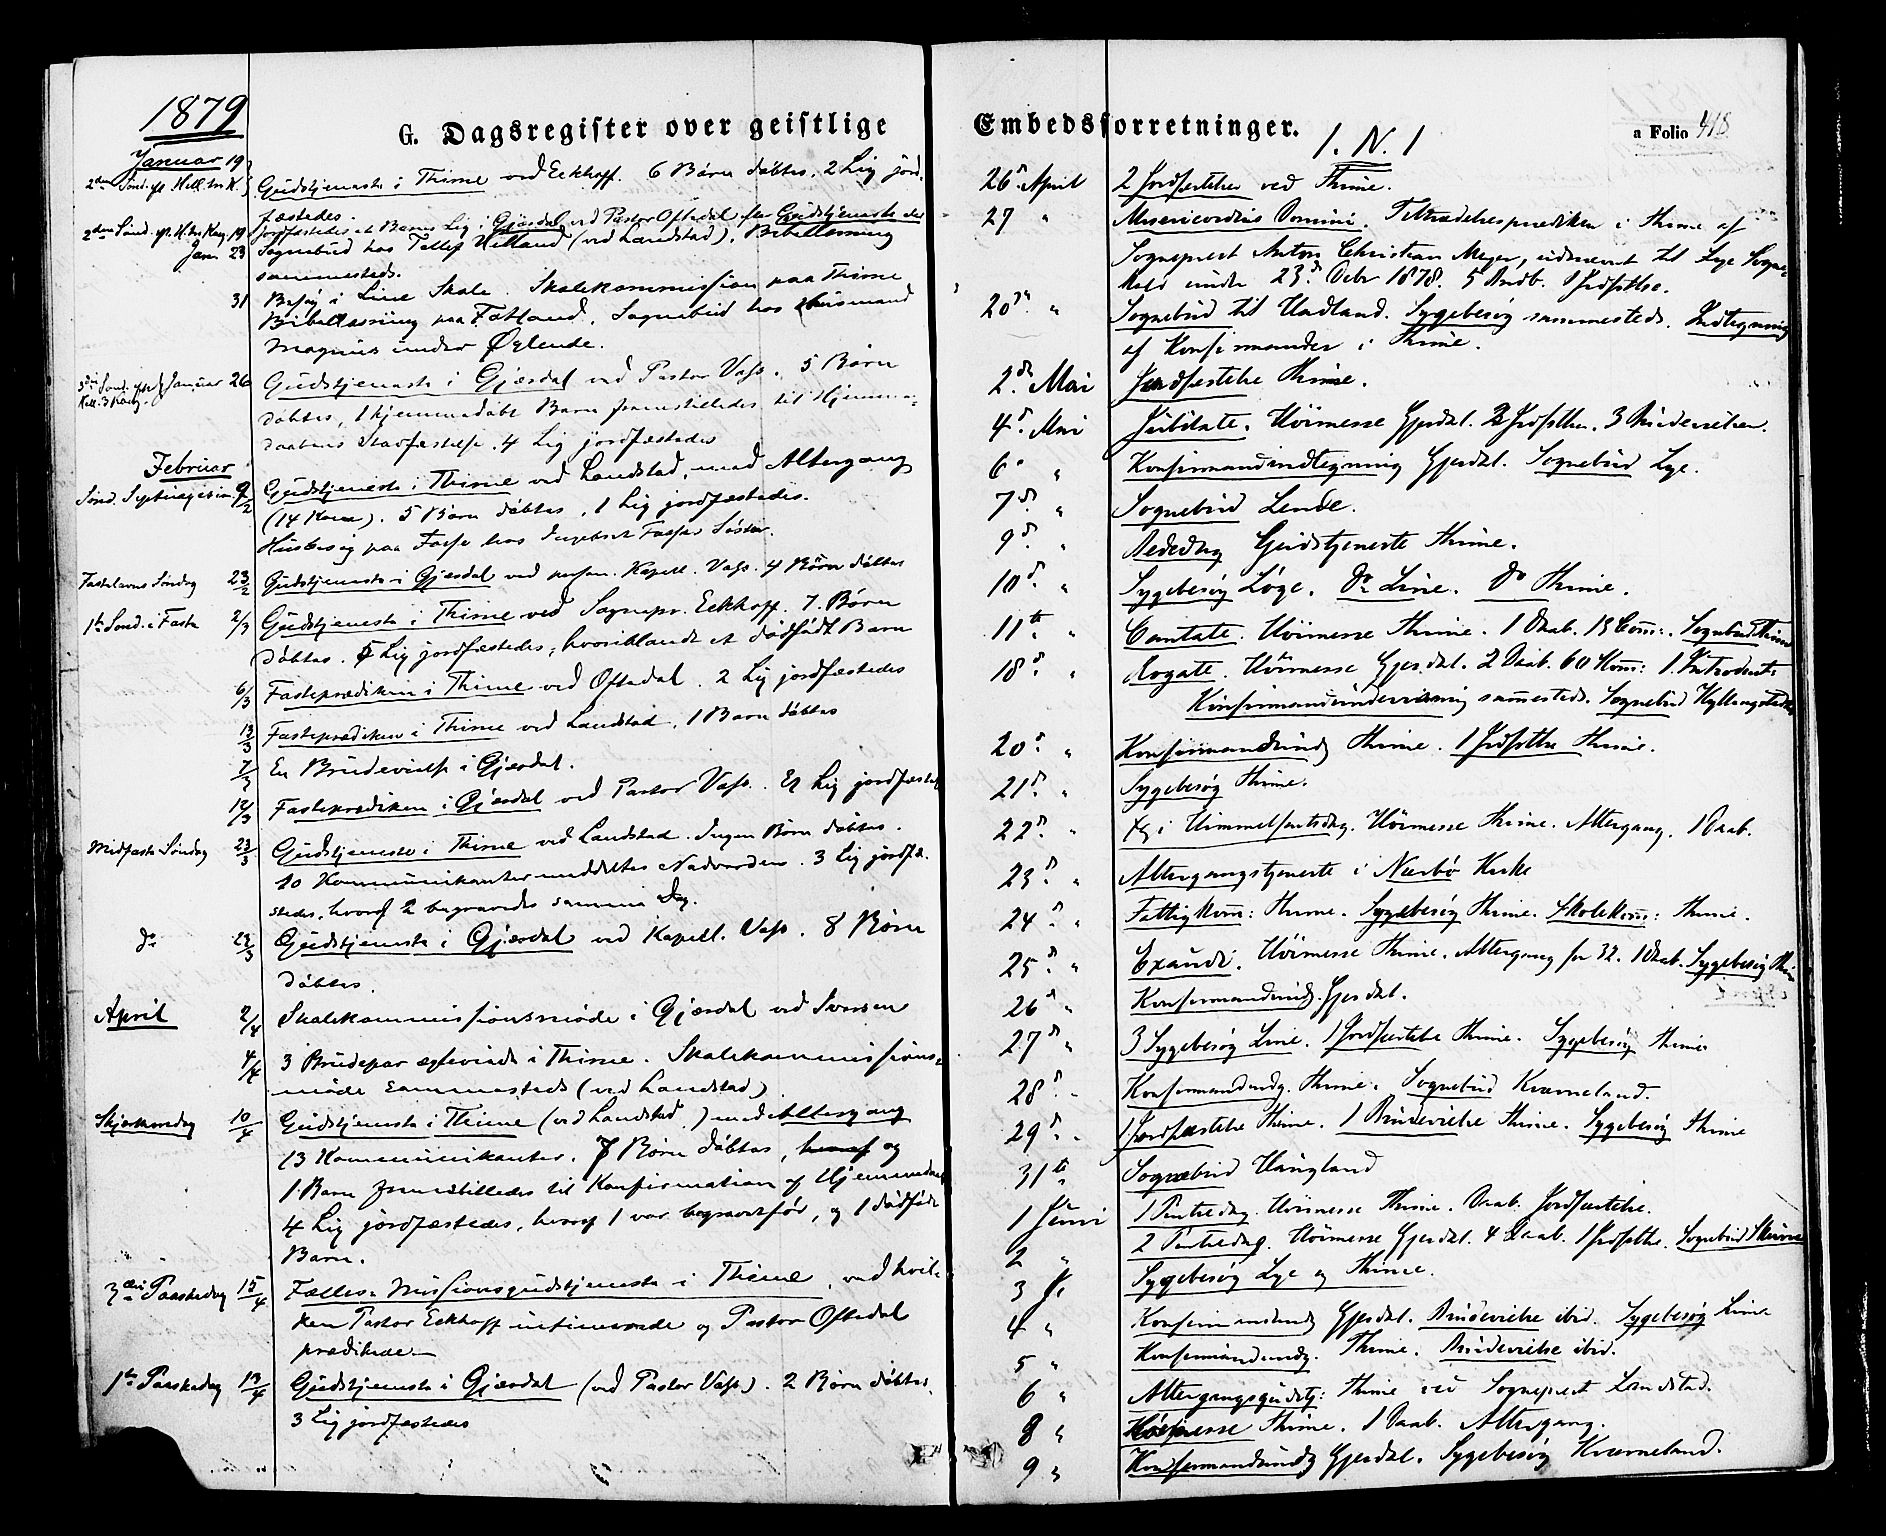 1879
G. Dagsregister over geistlige
Januar 19
2den Sønd. ep. Hell. tre K. Gudstjeneste i Thime ved Eckhoff. 6 Børn døbtes, 2 Lig jord-
fæstedes.
2den Sønd. ep. H. tre Kong. 19 Jordfæstedes et Barns Lig i Gjæsdal ved Pastor Oftedal efter Gudstjeneste
Jan. 23 Sognebud hos Tollef (ved Landstad). Bibellæsning
sammesteds.
31 Besøg i Line Skole. Skolekommission paa Thime
Bibellæsning paa Fotland. Sognebud hos Husmand
Magnus under Øglende.
3die Sønd. ep. Hell. 3 Kong. Januar 26 Gudstjeneste i Gjæsdal ved Pastor Vass. 5 Børn
døbtes, 1 hjemmedøbt Barn fremstilledes til Hjemme-
daabens Stadfæstelse. 4 Lig jordfæstedes
Februar
Sønd. Septuagesim. 9/2 Gudstjeneste i Thime ved Landstad, med Altergang
(14 Kom). 5 Børn døbtes, 1 Lig jordfæstedes.
Husbesøg paa hos Søster.
Fastelavns Søndag 23/2 Gudstjeneste i Gjæsdal ved person. Kapell. Vass. 4 Børn døbtes
1te Sønd. i Faste 2/3 Gudstjeneste i Thime ved Sognepr. Eckhoff. 7 Børn
døbtes. Lig jordfæstedes, hvoriblandt et dødfødt Barn
6/3 Fasteprædiken i Thime ved Oftedal. 2 Lig jordfæstedes
13/3 Fasteprædiken i Thime ved Landstad, 1 Barn døbtes
7/3 En Brudevielse i Gjæsdal.
14/3 Fasteprædiken i Gjæsdal ved Pastor Vass. Et Lig jordfæstet
Midfaste Søndag 23/3 Gudstjeneste i Thime ved Landstad. Ingen Børn døbtes.
10 Kommunikanter meddeltes Nadverden. 3 Lig jordfæ-
stedes, hvoraf 2 begravedes samme Dag.
do 23/3 Gudstjeneste i Gjæsdal ved Kapell. Vass. 8 Børn
døbtes.
April 2/4 Skolekommissionsmøde i Gjæsdal ved Svensen
4/4 3 Brudepar ægteviede i Thime. Skolekommissions-
møde sammesteds (ved Landstad)
Skjærtorsdag 10/4 Gudstjeneste i Thime (ved Landstad) med Altergang
13 Kommunikanter. 7 Børn døbtes, og
1 Barn fremstilledes til Konfirmation af Hjemmedaab
4 Lig jordfæstedes, hvoraf 1 var begravet før, og 1 dødfødt
Barn.
3die Paaskedag 15/4 Fælles-Missionsgudstjeneste i Thime, ved hvil-
ken Pastor Eckhoff messede og Pastor Oftedal
prædikede.
1te Paaskedag 13/4 Gudstjeneste i Gjæsdal (ved Pastor Vass). 2 Børn døbtes.
3 Lig jordfæstedes
Embedsforretninger.
1. N. 1
a Folio 418
26d April 2 Jordfæstelser ved Thime.
27 " Misericordias Domini. Tiltrædelsesprædiken i Thime af
Sognepræst Anton Christian Meyer, udnævnt til Lye Sogne-
kald under 23d Decbr 1878. 5 Daab. 1 Jrdfstlse.
" Sognebud til Undland. Sygebesøg sammesteds. Indtegning
af Konfirmander i Thime.
2d Mai Jordfæstelse Thime.
4d Mai Jubilate. Høimesse Gjesdal. 2 Jrdfstlsr. 3 Brudevielser.
6 " Konfirmandindtegning Gjesdal. Sognebud Lye.
7d " Sognebud Lende.
9d " Bededag Gudstjeneste Thime.
10d " Sygebesøg Løge. do Line. do Thime.
11te " Cantate. Høimesse Thime. 1 Daab. 13 Com:. Sognebud Thime
18d " Rogate. Høimesse Gjesdal. 2 Daab. 60 Kom: 1 Introduct:
Konfirmandundervisning sammesteds. Sognebud
20d " Konfirmandund. Thime. 1 Jrdfstlse Thime.
21d " Sygebesøg Thime.
22d " Kr. Himmelfartsdag. Høimesse Thime. Altergang. 1 Daab.
23d " Altergangstjeneste i Nærbø Kirke
24d " Fattigkom: Thime. Sygebesøg Thime. Skolekom: Thime.
25d " Exaudi. Høimesse Thime. Altergang for 32. 1 Daab. Sygebesøg Thime
26d " Konfirmandundg. Gjesdal.
27d " 3 Sygebesøg Line. 1 Jordfæstelse Thime. Sygebesøg Thime
28d " Konfirmandundg. Thime. Sognebud Kværneland.
29d " 1 Jordfæstelse Thime. 1 Brudevielse Thime. Sygebesøg Thime
31te " Sognebud Haugland
1 Juni 1 Pintsedag. Høimesse Thime. Daab. Jordfæstelse.
2 " 2 Pintsedag. Høimesse Gjesdal. 4 Daab. 1 Jrdfstlse. Sognebud
3 " Sygebesøg Lye og Thime.
4 " Konfirmandundg Gjesdal. Brudevielse ibid. Sygebesøg Line
5 " Konfirmandundg. Thime. Brudevielse ibid.
6 " Altergangsgudstj: Thime ved Sognepræst Landstad.
8 " Høimesse Thime. 1 Daab. Altergang.
9 " Konfirmandundg Gjesdal. Sygebesøg Kværneland.